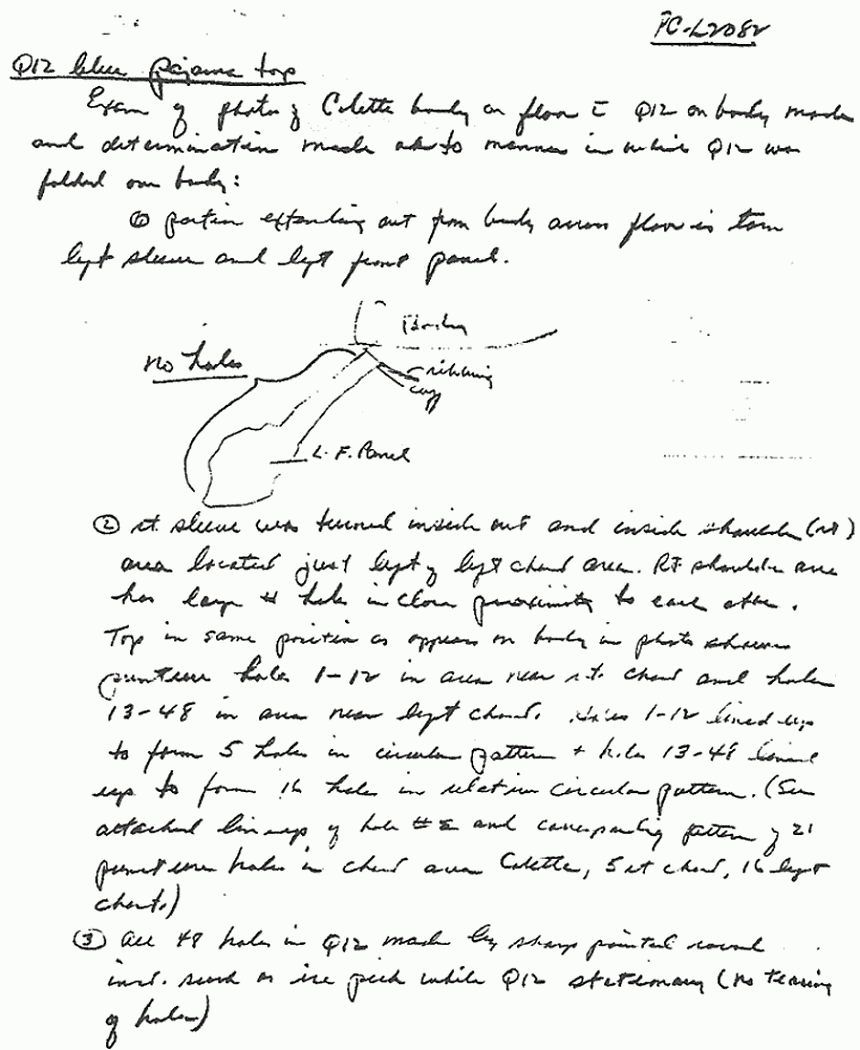 PC-L2082
Q12 blue pajama top
Exam of photos of Colette body on floor c̄ Q12 on body made
and determination made as to manner in which Q12 was
folded on body:
① portion extending out from body across floor is torn
left sleeve and left front panel.
Body
no holes
ribbing
cuff
L. F. Panel
② rt. sleeve was turned inside out and inside shoulder (rt)
area located just left of left chest area. Rt shoulder area
has large # holes in close proximity to each other.
Top in same position as appears on body in photo shows
puncture holes 1-12 in area near rt. chest and holes
13-48 in area near left chest. Holes 1-12 lined up
to form 5 holes in circular pattern + holes 13-48 lined
up to form 16 holes in relative circular pattern. (See
attached line-up of hole #s and corresponding pattern of 21
puncture holes in chest area Colette, 5 rt chest, 16 left
chest.)
③ all 48 holes in Q12 made by sharp pointed round
inst. such as ice pick while Q12 stationary (no tearing
of holes)